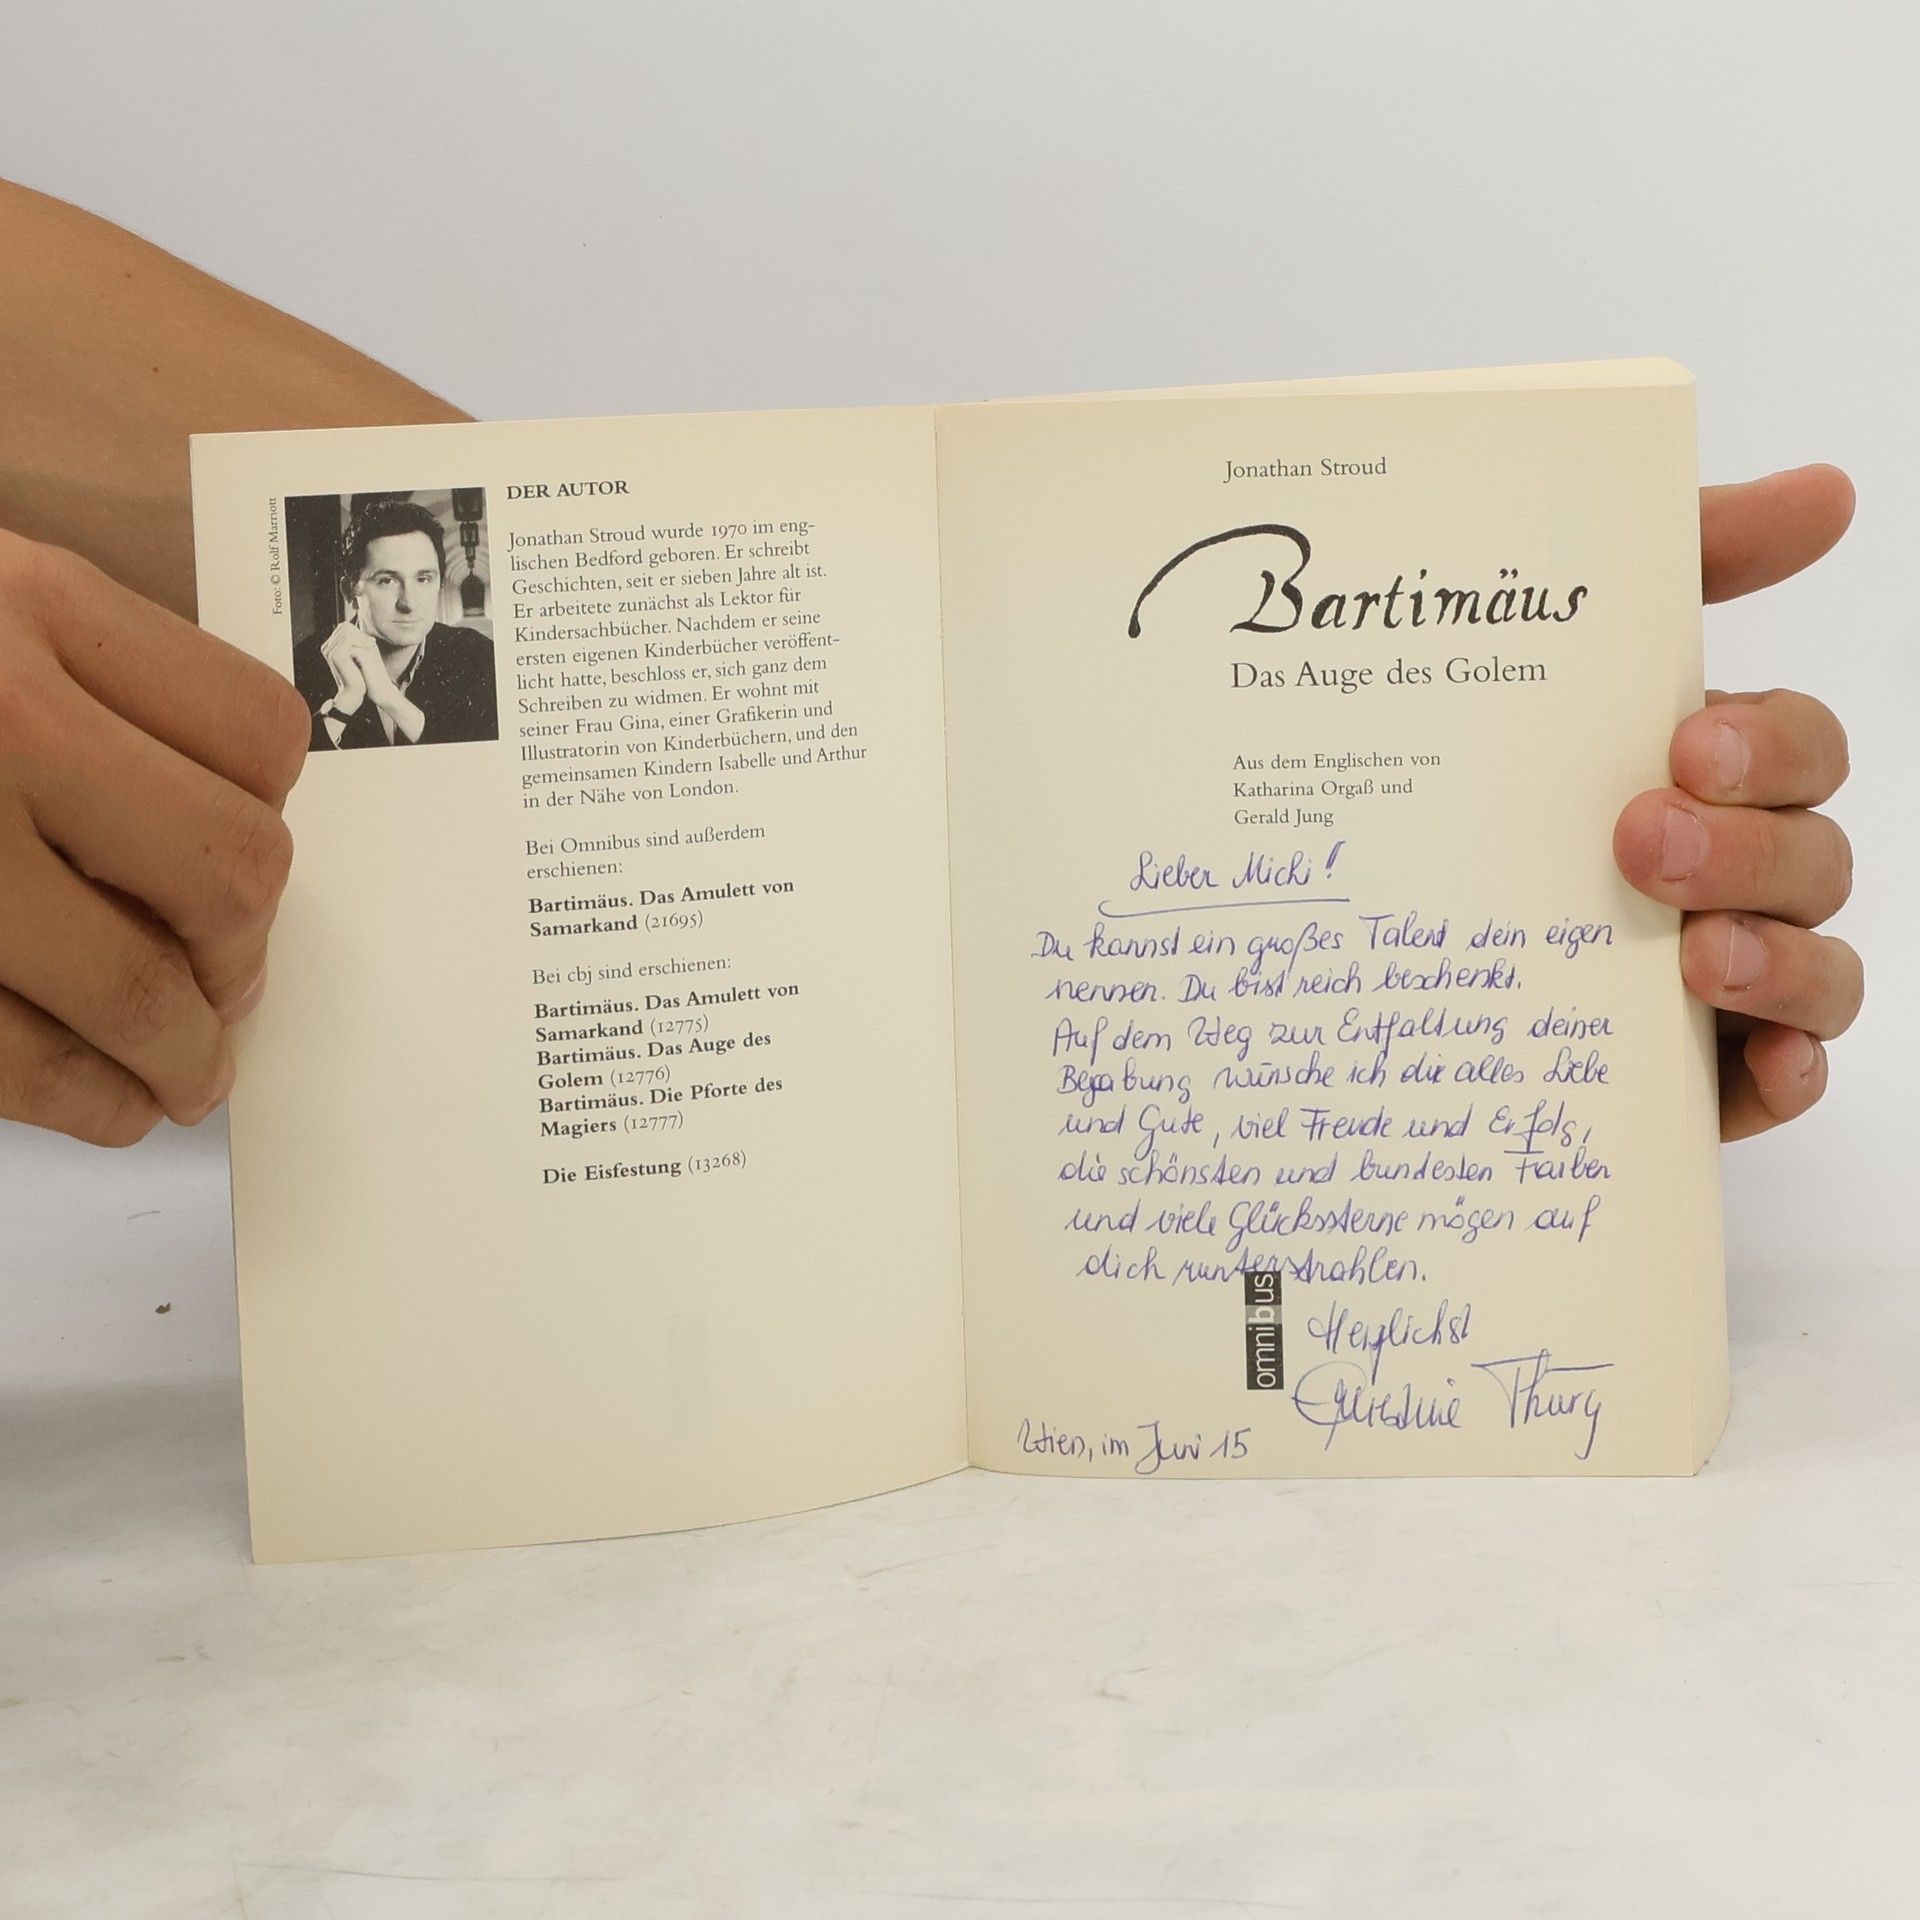 Foto: © Rolf Marriott
DER AUTOR
Jonathan Stroud wurde 1970 im eng-
lischen Bedford geboren. Er schreibt
Geschichten, seit er sieben Jahre alt ist.
Er arbeitete zunächst als Lektor für
Kindersachbücher. Nachdem er seine
ersten eigenen Kinderbücher veröffent-
licht hatte, beschloss er, sich ganz dem
Schreiben zu widmen. Er wohnt mit
seiner Frau Gina, einer Grafikerin und
Illustratorin von Kinderbüchern, und den
gemeinsamen Kindern Isabelle und Arthur
in der Nähe von London.
Bei Omnibus sind außerdem
erschienen:
Bartimäus. Das Amulett von
Samarkand (21695)
Bei cbj sind erschienen:
Bartimäus. Das Amulett von
Samarkand (12775)
Bartimäus. Das Auge des
Golem (12776)
Bartimäus. Die Pforte des
Magiers (12777)
Die Eisfestung (13268)
Jonathan Stroud
Bartimäus
Das Auge des Golem
Aus dem Englischen von
Katharina Orgaß und
Gerald Jung
Lieber Michi!
Du kannst ein großes Talent dein eigen
nennen. Du bist reich beschenkt.
Auf dem Weg zur Entfaltung deiner
Begabung wünsche ich dir alles Liebe
und Gute, viel Freude und Erfolg,
die schönsten und buntesten Farben
und viele Glückssterne mögen auf
dich runterstrahlen.
Herzlichst
Thury
Wien, im Juni 15
omnibus